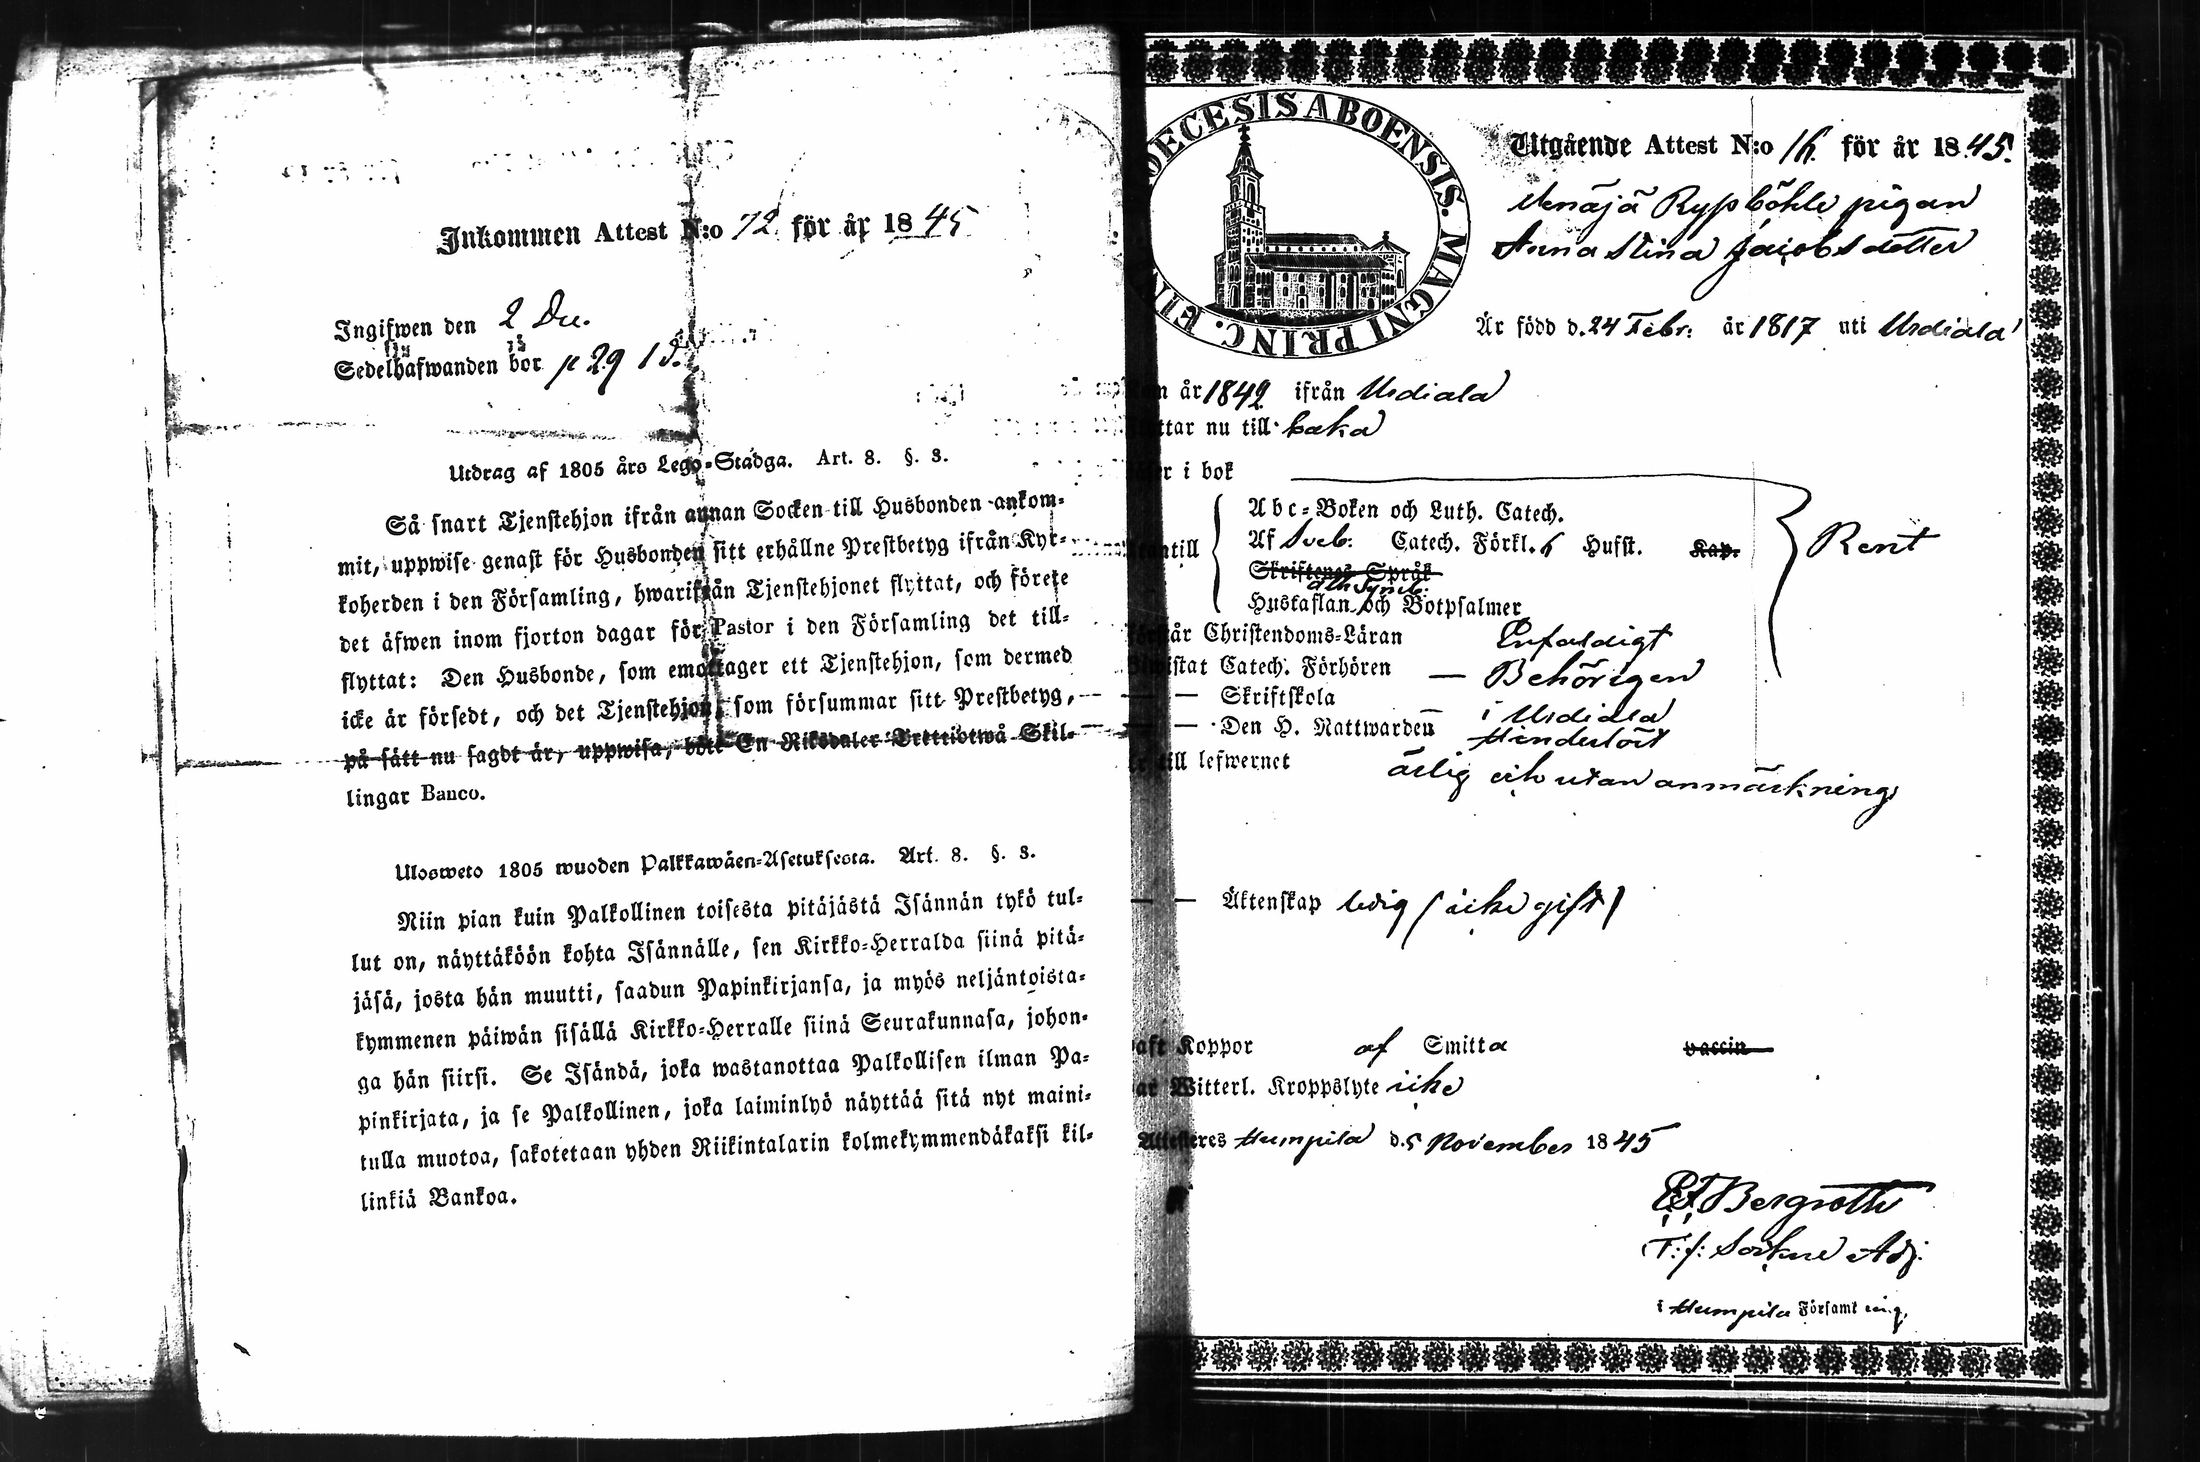 Inkommen Attest N:o 72 för år 1845
Ingifwen den 2 Dec.
Sedelhafwanden bor p 29
Utdrag af 1805 års Lego-Stadga. Art. 8. §. 3.
Så snart Tjenstehjon ifrån annan Socken till Husbonden ankom-
mit, uppwise genast för Husbonden sitt erhållne Prestbetyg ifrån Kyr-
koherden i den Församling, hwarifrån Tjenstehjonet flyttat, och förete
det äfwen inom fjorton dagar för Pastor i den Församling det till-
flyttat: Den Husbonde, som emottager ett Tjenstehjon, som dermed
icke är försedt, och det Tjenstehjon, som försummar sitt Prestbetyg,
på sätt nu sagdt är, uppwisa, böte En Riksdaler Trettiotwå Skil-
lingar Banco.
Ulosweto 1805 wuoden Palkkawäen-Asetuksesta. Art. 8. §. 3.
Niin pian kuin Palkollinen toisesta pitäjästä Isännän tykö tul-
lut on, näyttäköön kohta Isännälle, sen Kirkko-Herralda siinä pitä-
jäsä, josta hän muutti, saadun Papinkirjansa, ja myös neljäntoista-
kymmenen päiwän sisällä Kirkko-Herralle siinä Seurakunnasa, johon-
ga hän siirsi. Se Isändä, joka wastanottaa Palkollisen ilman Pa-
pinkirjata, ja se Palkollinen, joka laiminlyö näyttää sitä nyt maini-
tulla muotoa, sakotetaan yhden Riikintalarin kolmekymmendäkaksi kil-
linkiä Bankoa.
ECESIS ABOENSIS. MAGNI PRINC. FIN
Utgående Attest N:o 16. för år 1845.
Rypböhle pigan
Anna Stina Jacobsdotter
Är född d. 24 Febr: år 1817 uti Urdiala
år 1842 ifrån Urdiala
ttar nu till
r i bok
Abc-Boken och Luth. Catech.
Af Sveb: Catech. Förkl. 6 Husst. Kap.
antill
Rent
Skriftenes Språk
Ath Symb:
Hustaflan och Botpsalmer
står Christendoms-Läran Enfaldigt
istat Catech. Förhören — Behörigen
— — Skriftskola i Urdiala
— — Den H. Nattwarden Hinderlöst
till lefwernet ärlig och utan anmärkning
— — Äktenskap ledig (icke gift)
aft Koppor af Smitta vaccin
ar Witterl. Kroppslyte icke
Attesteres Humpila d. 5 November 1845
Bergroth
T: f: Sockne Adj.
i Humpila Församling,